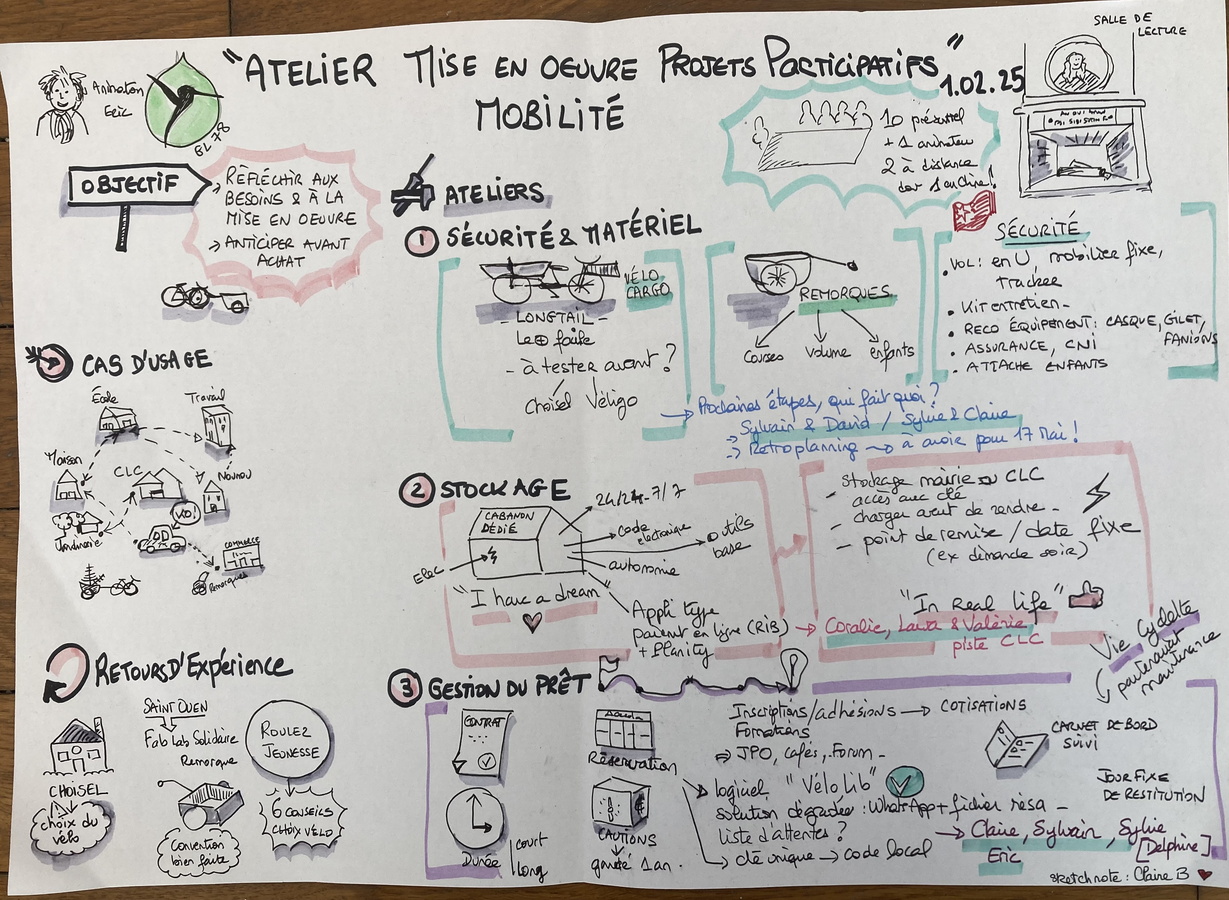 SALLE DE
LECTURE
"ATELIER MISE EN OEUVRE PROJETS PARTICIPATIFS"
MOBILITÉ
1.02.25
Animation
Eric
BL 78
10 présentiel
+ 1 animateur
2 à distance
OBJECTIF
→ RÉFLÉCHIR AUX
BESOINS & À LA
MISE EN OEUVRE
→ ANTICIPER AVANT
ACHAT
CAS D'USAGE
École
Travail
Maison
CLC
Nounou
KO!
Jardinerie
COMMERCE
Remorques
RETOURS D'EXPÉRIENCE
CHOISEL
choix du
vélo
SAINT OUEN
Fab Lab Solidaire
Remorque
Convention
bien faite
ROULEZ
JEUNESSE
6 CONSEILS
CHOIX VÉLO
ATELIERS
1 SÉCURITÉ & MATÉRIEL
VÉLO
CARGO
- LONGTAIL -
Le + faible
- à tester avant ?
Choisel Véligo
REMORQUES
Courses
volume
enfants
SÉCURITÉ
• VOL : en U mobilier fixe,
tracker
• Kit entretien -
• RECO ÉQUIPEMENT : CASQUE, GILET,
FANIONS
• ASSURANCE, CNI
• ATTACHE ENFANTS
→ Prochaines étapes, qui fait quoi ?
Sylvain & David / Sylvie & Claire
→ Retroplanning → à avoir pour 17 Mai !
2 STOCKAGE
CABANON
DÉDIÉ
Elec
24/24 - 7/7
code
électronique
outils
base
autonomie
"I have a dream"
Appli type
paiement en ligne (RIB)
+ Planity
- Stockage mairie ou CLC
accès avec clé
charger avant de rendre -
- point de remise / date fixe
(ex dimanche soir)
"In Real life"
→ Coralie, Laura & Valérie
piste CLC
3 GESTION DU PRÊT
Vie Cyclette
partenariat
maintenance
CONTRAT
Durée
court
long
Réservation
CAUTIONS
gratuité 1 an.
Inscriptions/adhésions → COTISATIONS
Formations
⇒ JPO, cafés, Forum -
logiciel "Vélo Lib"
solution dégradée : WhatsApp + fichier résa -
Liste d'attentes ?
clé unique → code local
CARNET DE BORD
SUIVI
JOUR FIXE
DE RESTITUTION
→ Claire, Sylvain, Sylvie
Eric
[Delphine]
sketchnote : Claire B